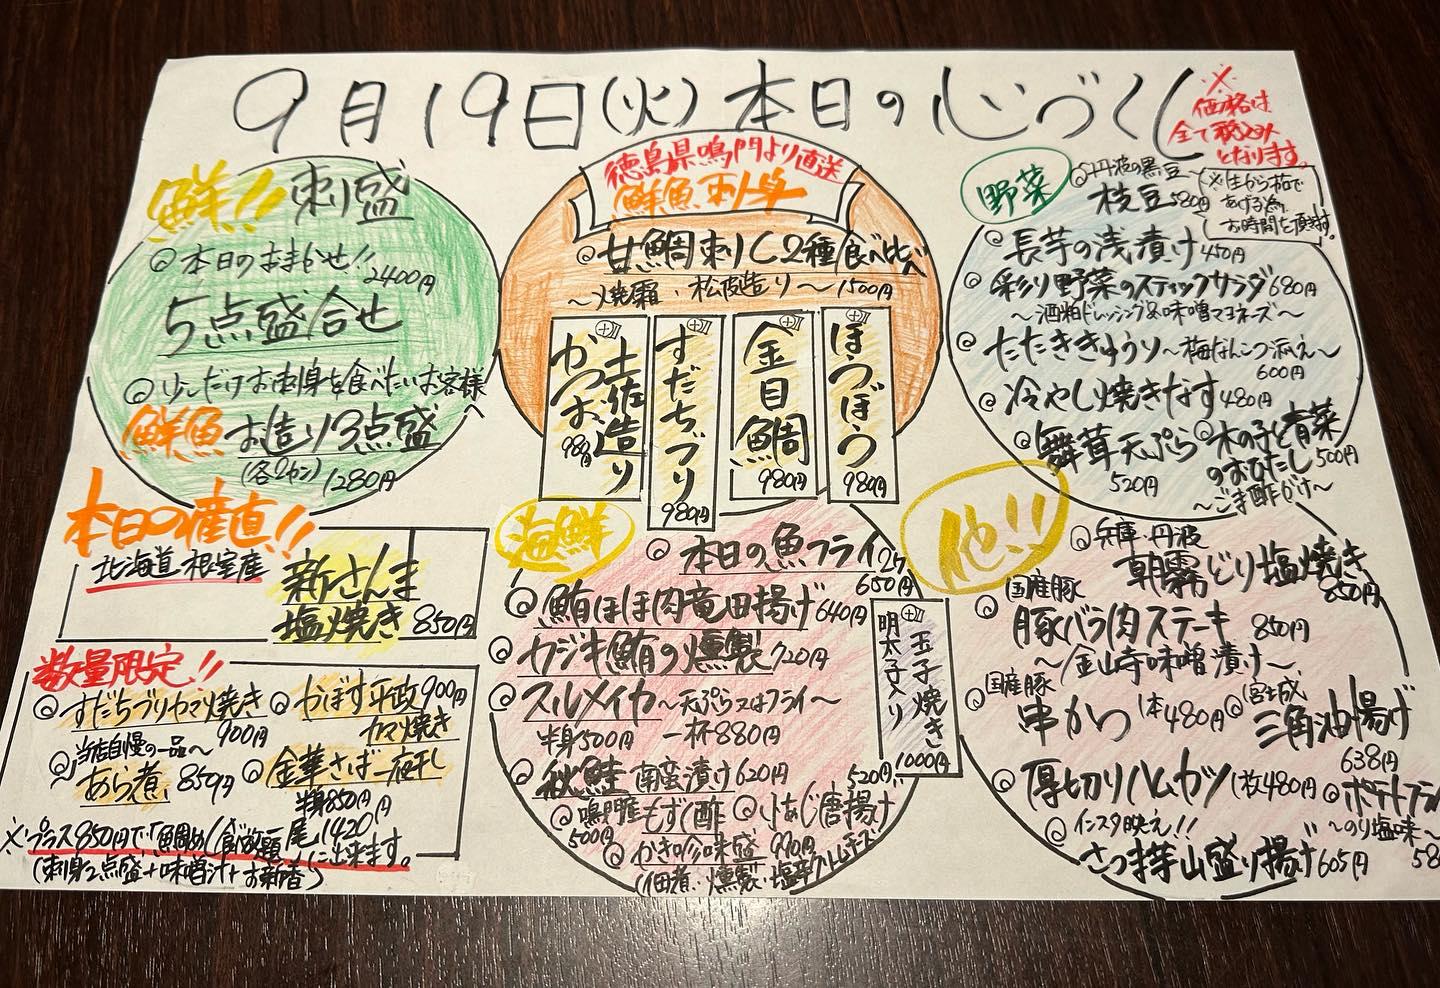 9月19日(火)本日の心づくし
※価格は
全て税込み
となります。
鮮!! 刺盛
◎本日のおまかせ!! 2400円
5点盛合せ
◎少しだけお刺身を食べたいお客様へ
鮮魚お造り3点盛
(各2カン) 1280円
徳島県鳴門より直送
鮮魚刺身
◎甘鯛刺し2種食べ比べ
〜焼霜、松皮造り〜1500円
かつお土佐造り
980円
すだちぶり
980円
金目鯛
980円
ほうぼう
980円
野菜
◎丹波の黒豆
枝豆580円
※生から茹で
あげる為
お時間を頂きます。
◎長芋の浅漬け450円
◎彩り野菜のスティックサラダ680円
〜酒粕ドレッシング&味噌マヨネーズ〜
◎たたききゅうり〜梅なんこつ添え〜
600円
◎冷やし焼きなす480円
◎舞茸天ぷら
520円
◎木の子と青菜
のおひたし500円
〜ごま酢がけ〜
本日の産直!!
北海道 根室産
新さんま
塩焼き850円
数量限定!!
◎すだちぶりカマ焼き
900円
◎かぼす平政900円
カマ焼き
◎当店自慢の一品〜
あら煮 850円
◎金華さば一夜干し
半身850円
一尾1420円
※プラス850円で「鯛めし食べ放題」に出来ます。
(刺身2点盛+味噌汁+お新香)
海鮮
◎本日の魚フライ2ケ
650円
◎鮪ほほ肉竜田揚げ640円
◎カジキ鮪の燻製720円
◎スルメイカ〜天ぷら又はフライ〜
半身500円 一杯880円
◎秋鮭南蛮漬け620円
◎鳴門産もずく酢
500円
◎小あじ唐揚げ
520円
◎かき珍味盛 990円
(佃煮・燻製・塩辛クリームチーズ)
明太子入り
玉子焼き
1000円
他!!
◎兵庫・丹波
朝霧どり塩焼き
850円
◎国産豚
豚バラ肉ステーキ 850円
〜金山寺味噌漬け〜
◎国産豚
串かつ 1本480円
◎宮城
三角油揚げ
638円
◎厚切りハムカツ 1枚480円
◎ポテトフライ
〜のり塩味〜
58
◎インスタ映え!!
さつま芋山盛り揚げ605円